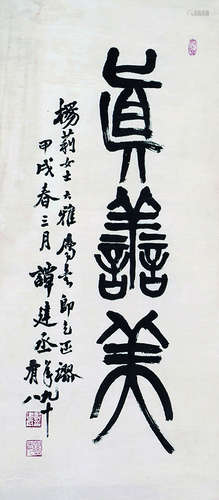 真善美
楊莉女士大雅屬書即乞正謬
甲戌春三月譚建丞年九十有八